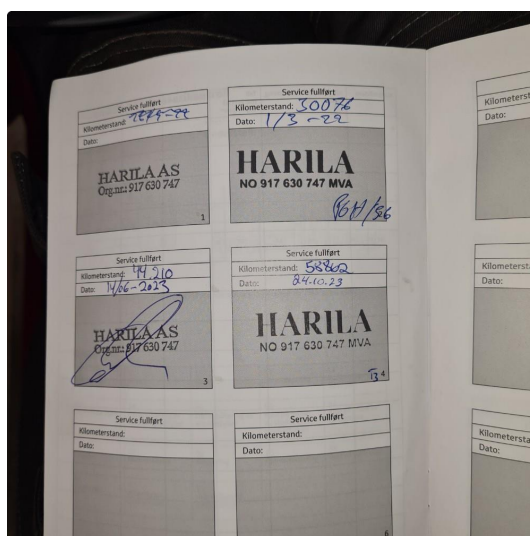 Service fullført
Kilometerstand:
Dato:
HARILA AS
Org.nr.: 917 630 747
1
Service fullført
Kilometerstand: 30076
Dato: 1/3 - 22
HARILA
NO 917 630 747 MVA
Service fullført
Kilometerstand: 44.210
Dato: 14/06-2023
HARILA AS
Org.nr.: 917 630 747
3
Service fullført
Kilometerstand: 58862
Dato: 24.10.23
HARILA
NO 917 630 747 MVA
4
Service fullført
Kilometerstand:
Dato:
Service fullført
Kilometerstand:
Dato:
6
Kilometerst
Dato:
Kilometerst
Dato:
Kilometersta
Dato: